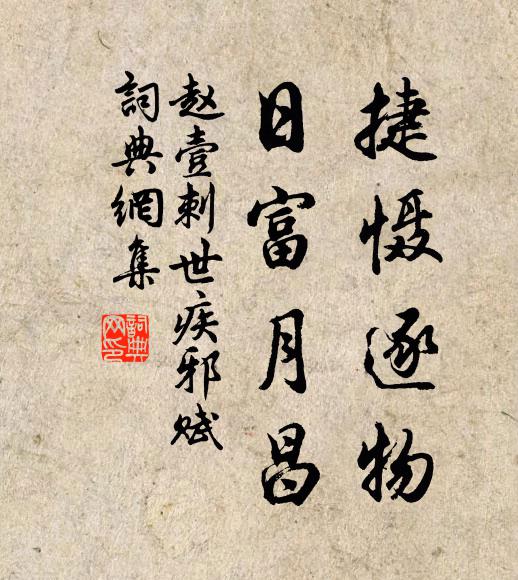 捷慑逐物
日富月昌
赵壹刺世疾邪赋
詞典網集
詞典网印